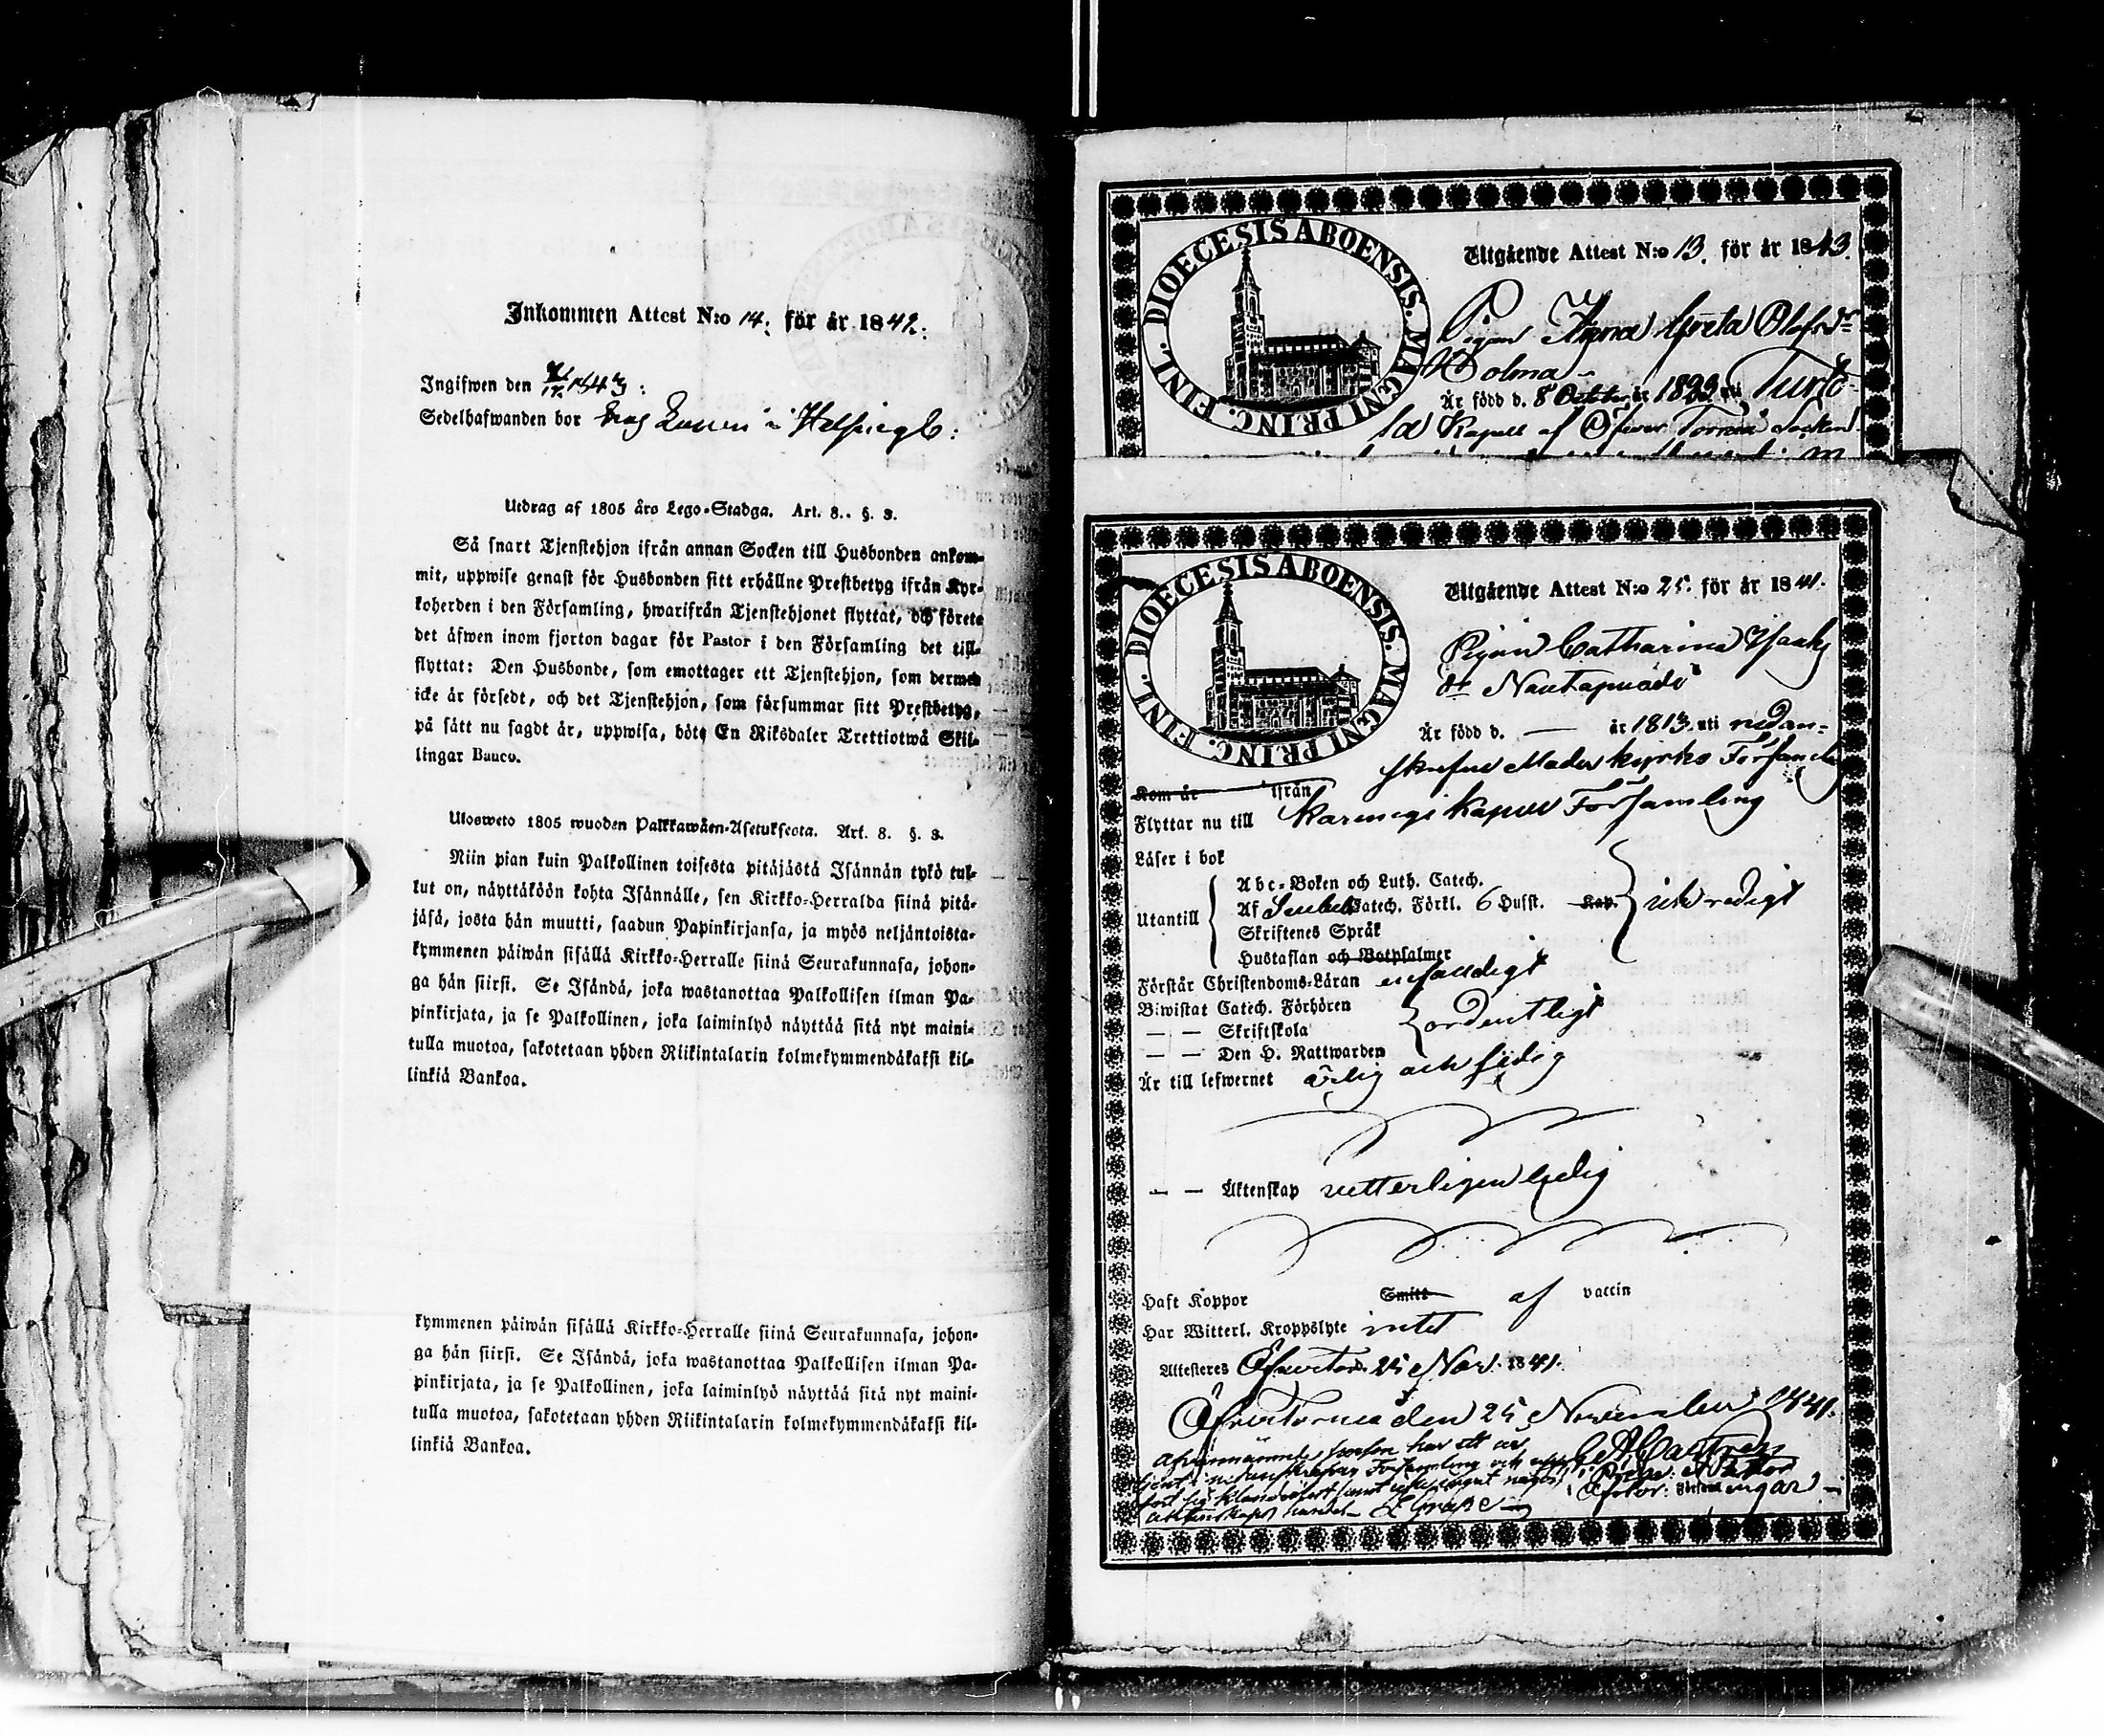 Inkommen Attest N:o 14. för år 1842.
Ingifwen den 1843:
Sedelhafwanden bor hos i
Utdrag af 1805 års Lego-Stadga. Art. 8.. §. 3.
Så snart Tjenstehjon ifrån annan Socken till Husbonden ankom-
mit, uppwise genast för Husbonden sitt erhållne Prestbetyg ifrån Kyr-
koherden i den Församling, hwarifrån Tjenstehjonet flyttat, och förete
det äfwen inom fjorton dagar för Pastor i den Församling det till-
flyttat: Den Husbonde, som emottager ett Tjenstehjon, som dermed
icke är försedt, och det Tjenstehjon, som försummar sitt Prestbetyg,
på sätt nu sagdt är, uppwisa, böte En Riksdaler Trettiotwå Skil-
lingar Banco.
Ulosweto 1805 wuoden Palkkawäen-Asetuksesta. Art. 8. §. 3.
Niin pian kuin Palkollinen toisesta pitäjästä Isännän tykö tul-
lut on, näyttäköön kohta Isännälle, sen Kirkko-Herralda siinä pitä-
jäsä, josta hän muutti, saadun Papinkirjansa, ja myös neljäntoista-
kymmenen päiwän sisällä Kirkko-Herralle siinä Seurakunnasa, johon-
ga hän siirsi. Se Isändä, joka wastanottaa Palkollisen ilman Pa-
pinkirjata, ja se Palkollinen, joka laiminlyö näyttää sitä nyt maini-
tulla muotoa, sakotetaan yhden Riikintalarin kolmekymmendäkaksi kil-
linkiä Bankoa.
kymmenen päiwän sisällä Kirkko-Herralle siinä Seurakunnasa, johon-
ga hän siirsi. Se Isändä, joka wastanottaa Palkollisen ilman Pa-
pinkirjata, ja se Palkollinen, joka laiminlyö näyttää sitä nyt maini-
tulla muotoa, sakotetaan yhden Riikintalarin kolmekymmendäkaksi kil-
linkiä Bankoa.
DIOECESIS ABOENSIS. MAGNI PRINC. FINL.
Utgående Attest N:o 13. för år 1843.
Pigan Anna Greta Olofsdr
Kolma
Är född d. 8 October år 1823 uti Turto-
la Kapell af Öfver Torneå Socken
DIOECESIS ABOENSIS. MAGNI PRINC. FINL.
Utgående Attest N:o 25. för år 1841.
Pigan Catharina Isaks
dr Nautapuodi
Är född d. — år 1813. uti nedan-
skrefne Moderkyrko Församling
Kom år ifrån
Flyttar nu till Karungi Kapell Församling
Läser i bok
Utantill
Abc-Boken och Luth. Catech.
Af Catech. Förkl. 6 Hufst. Kap.
Skriftenes Språk
Hustaflan och Botpsalmer
redigt
Förstår Christendoms-Läran enfaldigt
Biwistat Catech. Förhören
— — Skriftskola
— — Den H. Nattwarden
ordentligt
Är till lefwernet ärlig och sedig
— — Äktenskap vetterligen ledig
Haft Koppor Smitt af vaccin
Har Witterl. Kroppslyte intet
Attesteres Öfvertor. 25 Nov. 1841.
Öfvertorneå den 25 November 1841.